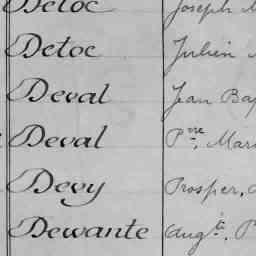 Detoc Joseph
Detoc Julien
Deval Jean Bap
Deval Pre, Mari
Devy Prosper,
Dewante Augte, P